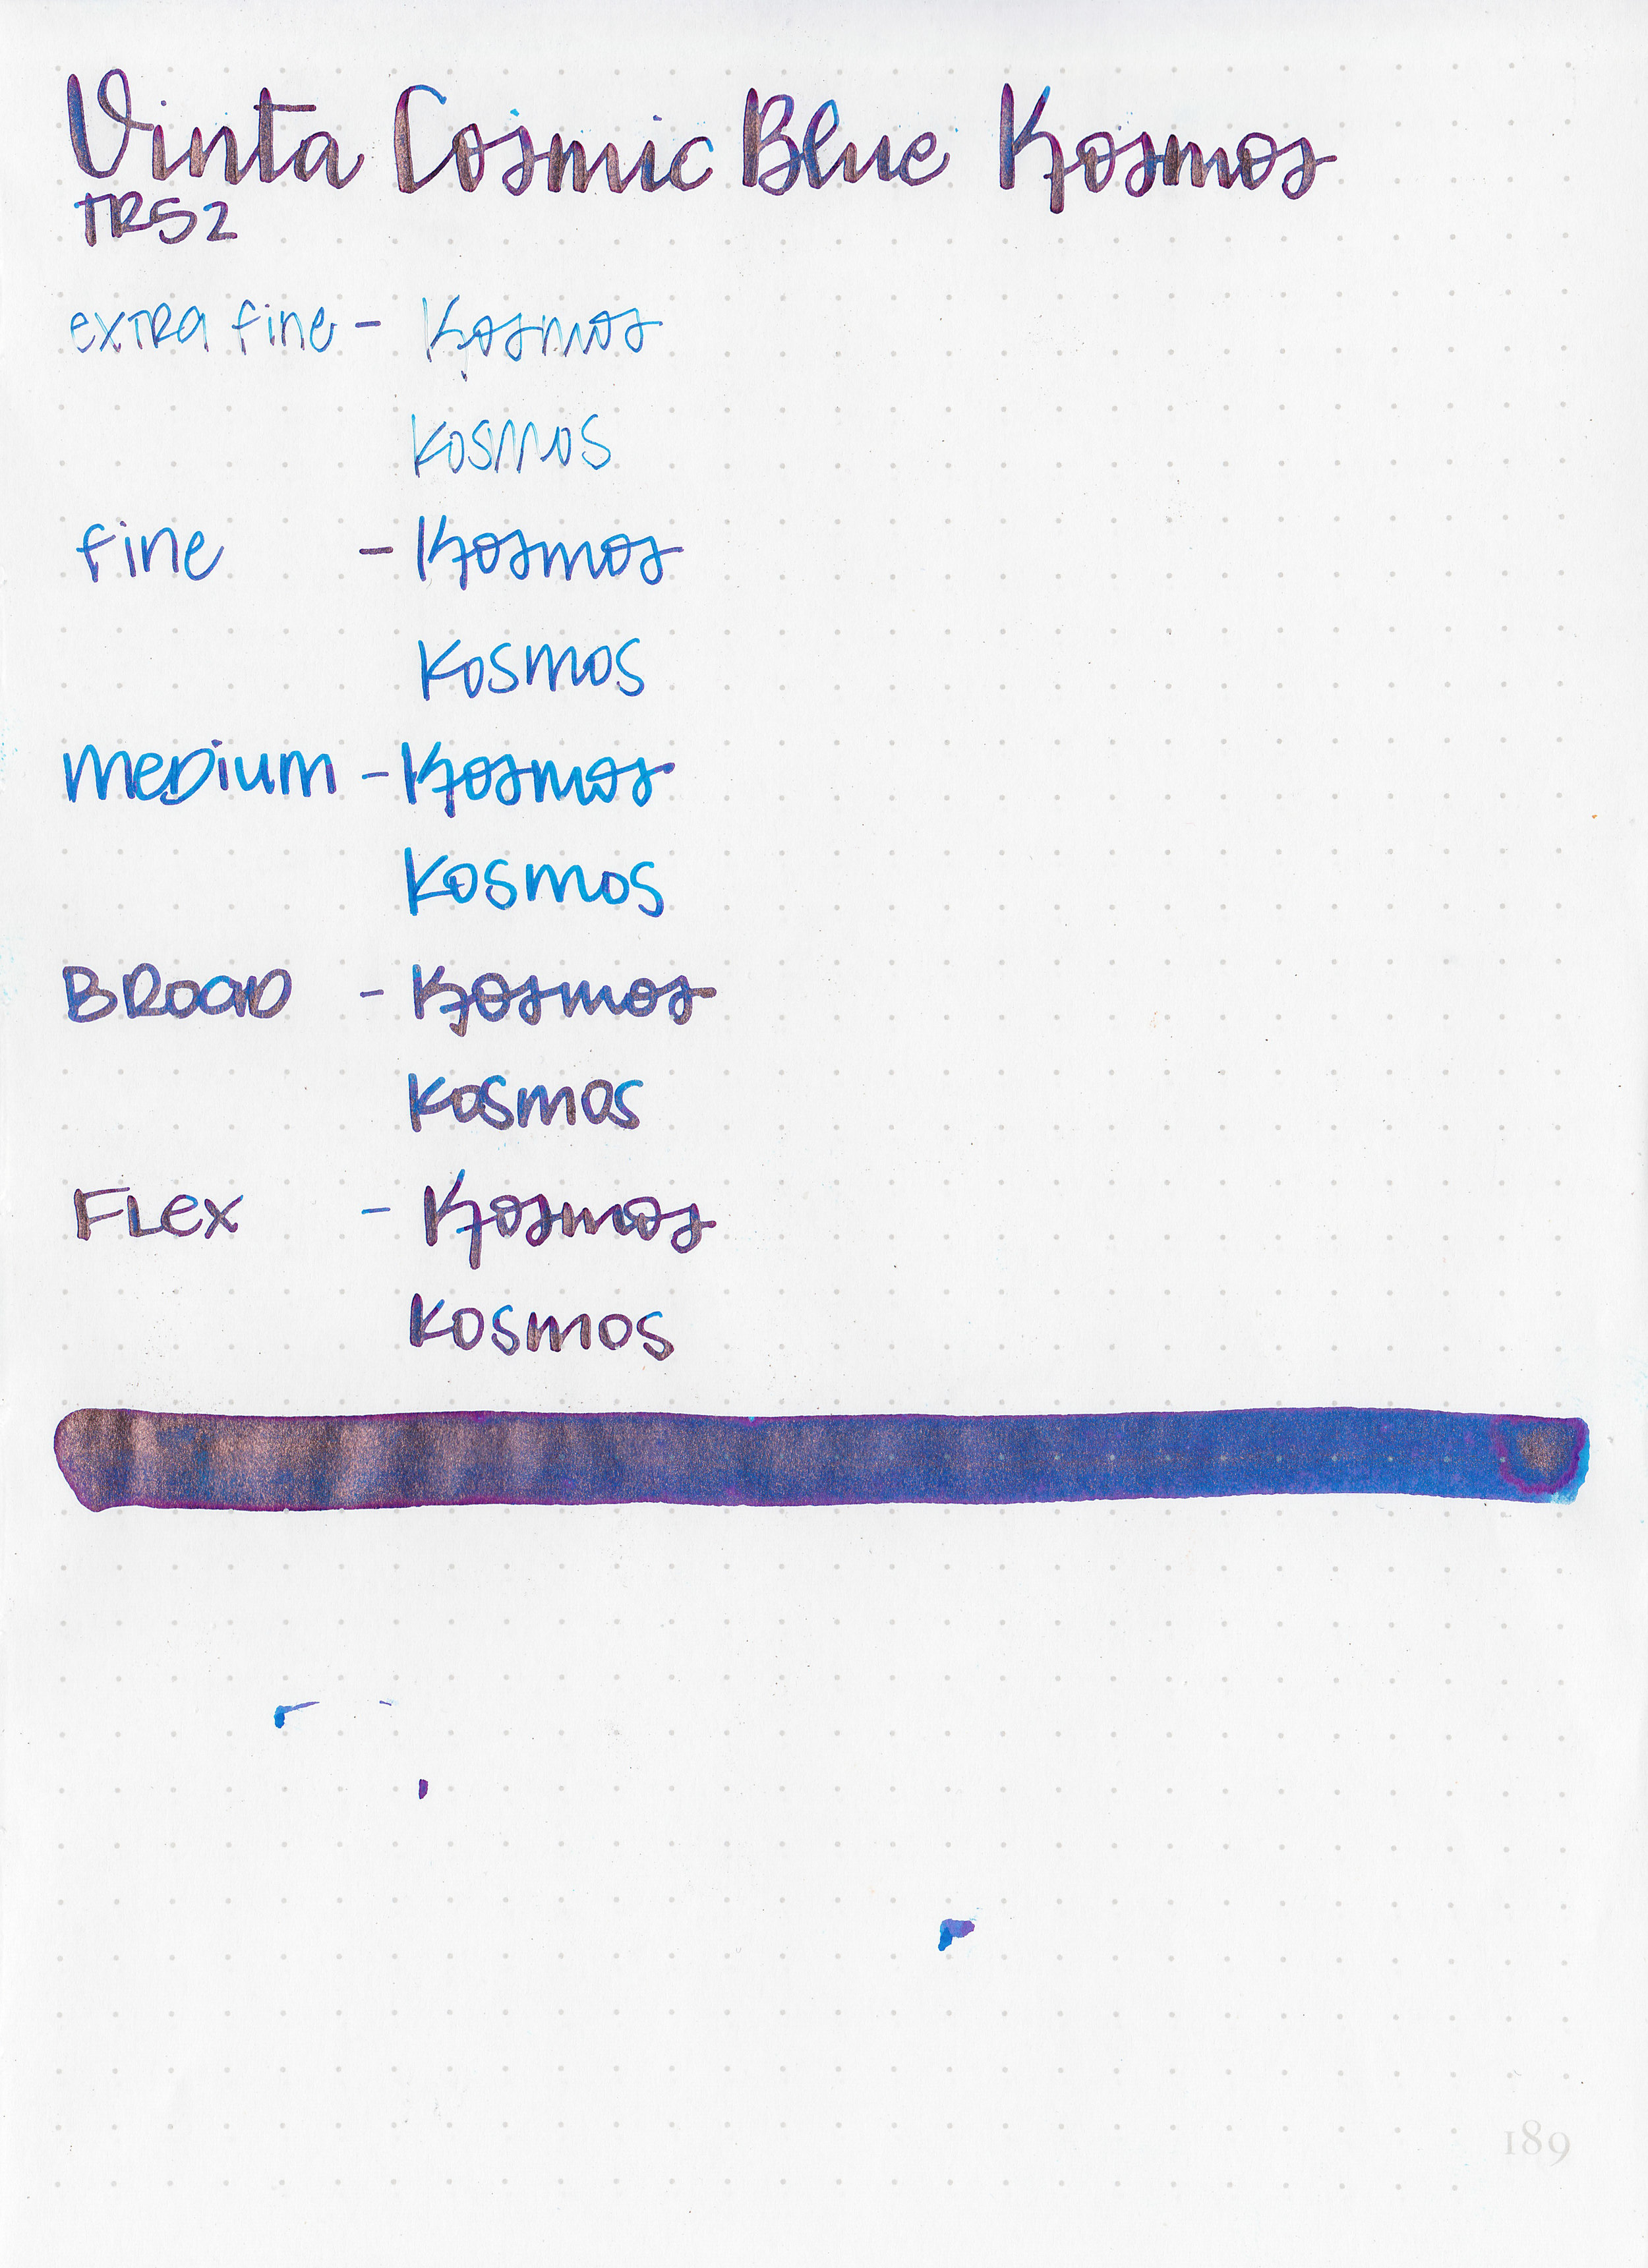 Vinta Cosmic Blue Kosmos
TR52
extra fine - Kosmos
Kosmos
fine - Kosmos
Kosmos
Medium - Kosmos
Kosmos
BROAD - Kosmos
Kosmos
FLex - Kosmos
Kosmos
189